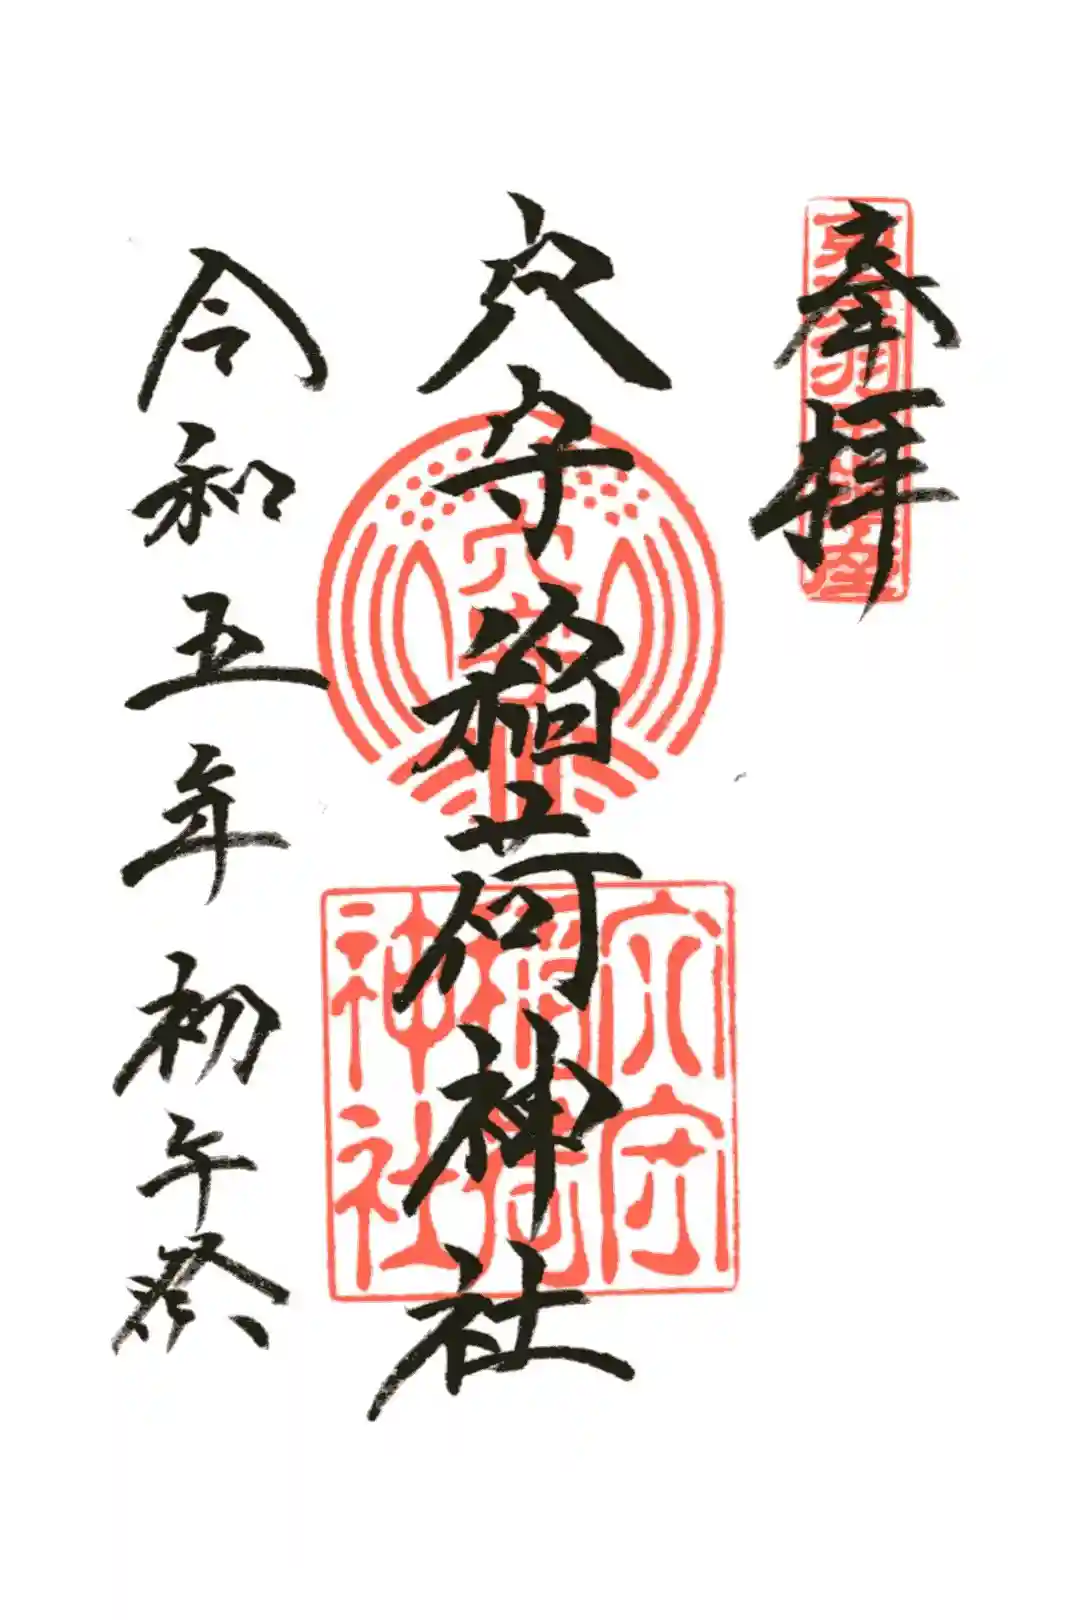 奉拝
穴守稲荷神社
令和五年初午祭
穴守
穴守稲荷神社